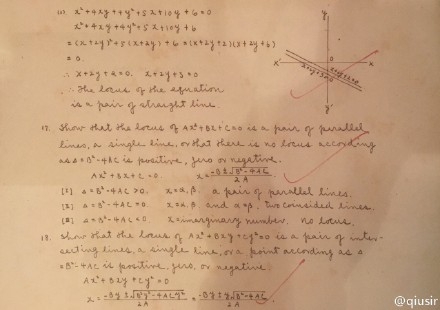 (c) x²+4xy+4y²+5x+10y+6=0
x²+4xy+4y²+5x+10y+6
=(x+2y)²+5(x+2y)+6=(x+2y+2)(x+2y+3)
=0.
∴ x+2y+2=0. x+2y+3=0
∴ The locus of the equation
is a pair of straight line.
y
x'
o
x
y'
x+2y+3=0
x+2y+2=0
17. Show that the locus of Ax²+Bx+C=0 is a pair of parallel
lines, a single line, or that there is no locus according
as Δ=B²-4AC is positive, zero or negative.
Ax²+Bx+C=0. x=(-B±√(B²-4AC))/2A
[1] Δ=B²-4AC>0. x=α,β. a pair of parallel lines.
[2] Δ=B²-4AC=0 x=α,β and α=β, two coinsided lines.
[3] Δ=B²-4AC<0. x=imarginary number. no locus.
18. Show that the locus of Ax²+Bxy+Cy²=0 is a pair of inter-
secting lines, a single line, or a point according as Δ
=B²-4AC is positive, zero, or negative.
Ax²+Bxy+Cy²=0
x=(-By±√(B²y²-4ACy²))/2A=(-By±y√(B²-4AC))/2A
@qiusir